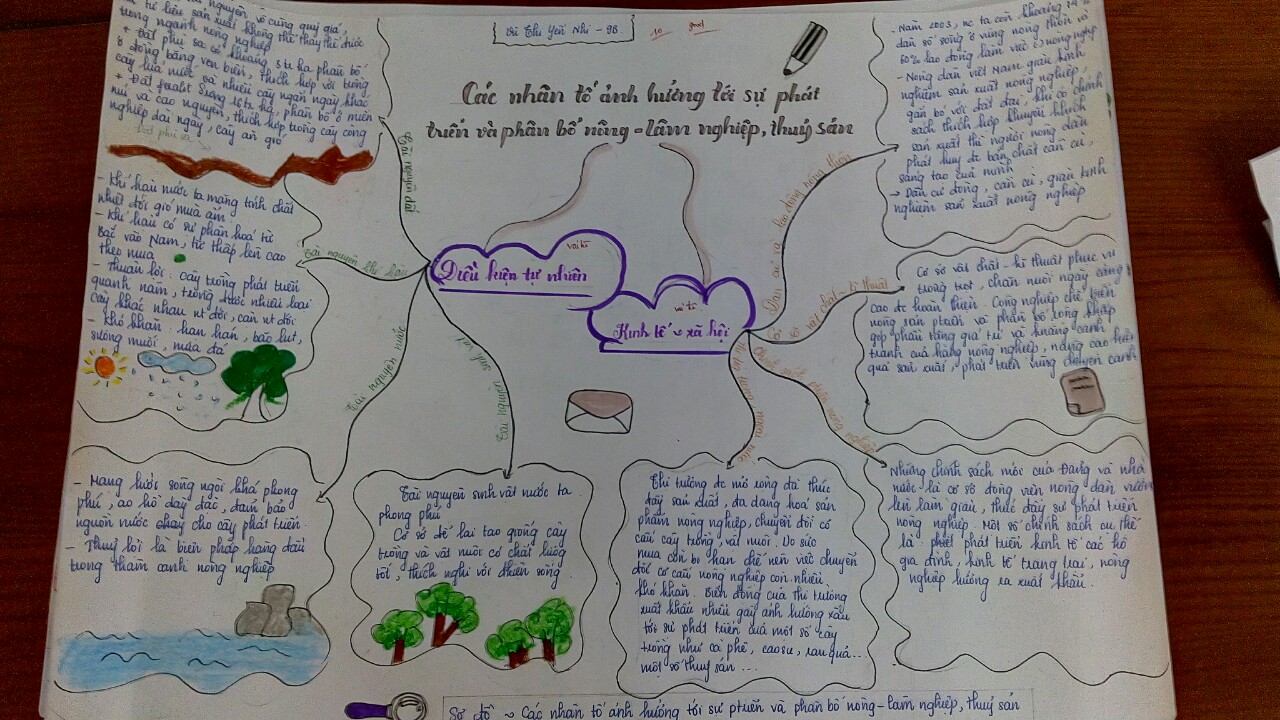 Vũ Thị Yến Nhi - 9B.
10 good
Các nhân tố ảnh hưởng tới sự phát
triển và phân bố nông - lâm nghiệp, thuỷ sản
nguyên vô cùng quý giá,
tư liệu sản xuất không thể thay thế được
trong ngành nông nghiệp
+ Đất phù sa có khoảng 3tr ha phân bố
ở đồng bằng ven biển, thích hợp với trồng
cây lúa nước và nhiều cây ngắn ngày khác
+ Đất feralit 16tr ha, phân bố ở miền
núi và cao nguyên, thích hợp trồng cây công
nghiệp dài ngày, cây ăn giờ
Đất phù sa
Tài nguyên đất
- Khí hậu nước ta mang tính chất
nhiệt đới gió mùa ẩm
- Khí hậu có sự phân hoá từ
Bắc vào Nam, từ thấp lên cao
theo mùa
- Thuận lợi: Cây trồng phát triển
quanh năm, trồng được nhiều loại
cây khác nhau nđ đới, cận nđ đới
- Khó khăn: hạn hán, bão lụt,
sương muối, mưa đá
Tài nguyên khí hậu
vai trò
Điều kiện tự nhiên
vai trò
Kinh tế - xã hội
Tài nguyên nước
Tài nguyên sinh vật
- Mạng lưới sông ngòi khá phong
phú, ao hồ dày đặc, đảm bảo
nguồn nước cho cây phát triển
- Thuỷ lợi là biện pháp hàng đầu
trong thâm canh nông nghiệp
Tài nguyên sinh vật nước ta
phong phú
Cơ sở để lai tạo giống cây
trồng và vật nuôi có chất lượng
tốt, thích nghi với thiên sống
- Năm 2003, nc ta còn khoảng
dân số sống ở vùng nông thôn và
60% lao động làm việc ở nông nghiệp
- Nông dân việt Nam giàu kinh
nghiệm sản xuất nông nghiệp,
gắn bó với đất đai, khi có chính
sách thích hợp khuyến khích
sản xuất thì người nông dân
phát huy đc bản chất cần cù,
sáng tạo của mình
→ Dân cư đông, cần cù, giàu kinh
nghiệm sản xuất nông nghiệp
Dân cư và lao động nông thôn
Cơ sở vật chất - kĩ thuật
Cơ sở vật chất - kĩ thuật phục vụ
trồng trọt, chăn nuôi ngày càng
cao đc hoàn thiện. Công nghiệp chế biến
nông sản ptriển và phân bố rộng khắp
góp phần tăng giá trị và khả năng cạnh
tranh của hàng nông nghiệp, nâng cao hiệu
quả sản xuất, phát triển vùng chuyên canh
Chính sách phát triển nông nghiệp
Thị trường đc mở rộng đã thúc
đẩy sản xuất, đa dạng hoá sản
phẩm nông nghiệp, chuyển đổi cơ
cấu cây trồng, vật nuôi. Do sức
mua còn bị hạn chế nên việc chuyển
đổi cơ cấu nông nghiệp còn nhiều
khó khăn. Biến động của thị trường
xuất khẩu nhiều gây ảnh hưởng xấu
tới sự phát triển của một số cây
trồng như cà phê, cao su, rau quả...
một số thuỷ sản ...
Những chính sách mới của Đảng và nhà
nước là cơ sở động viên nông dân vươn
lên làm giàu, thúc đẩy sự phát triển
nông nghiệp. Một số chính sách cụ thể
là: phát triển kinh tế các hộ
gia đình, kinh tế trang trại, nông
nghiệp hướng ra xuất khẩu.
Sơ đồ ~ Các nhân tố ảnh hưởng tới sự ptriển và phân bố nông - lâm nghiệp, thuỷ sản